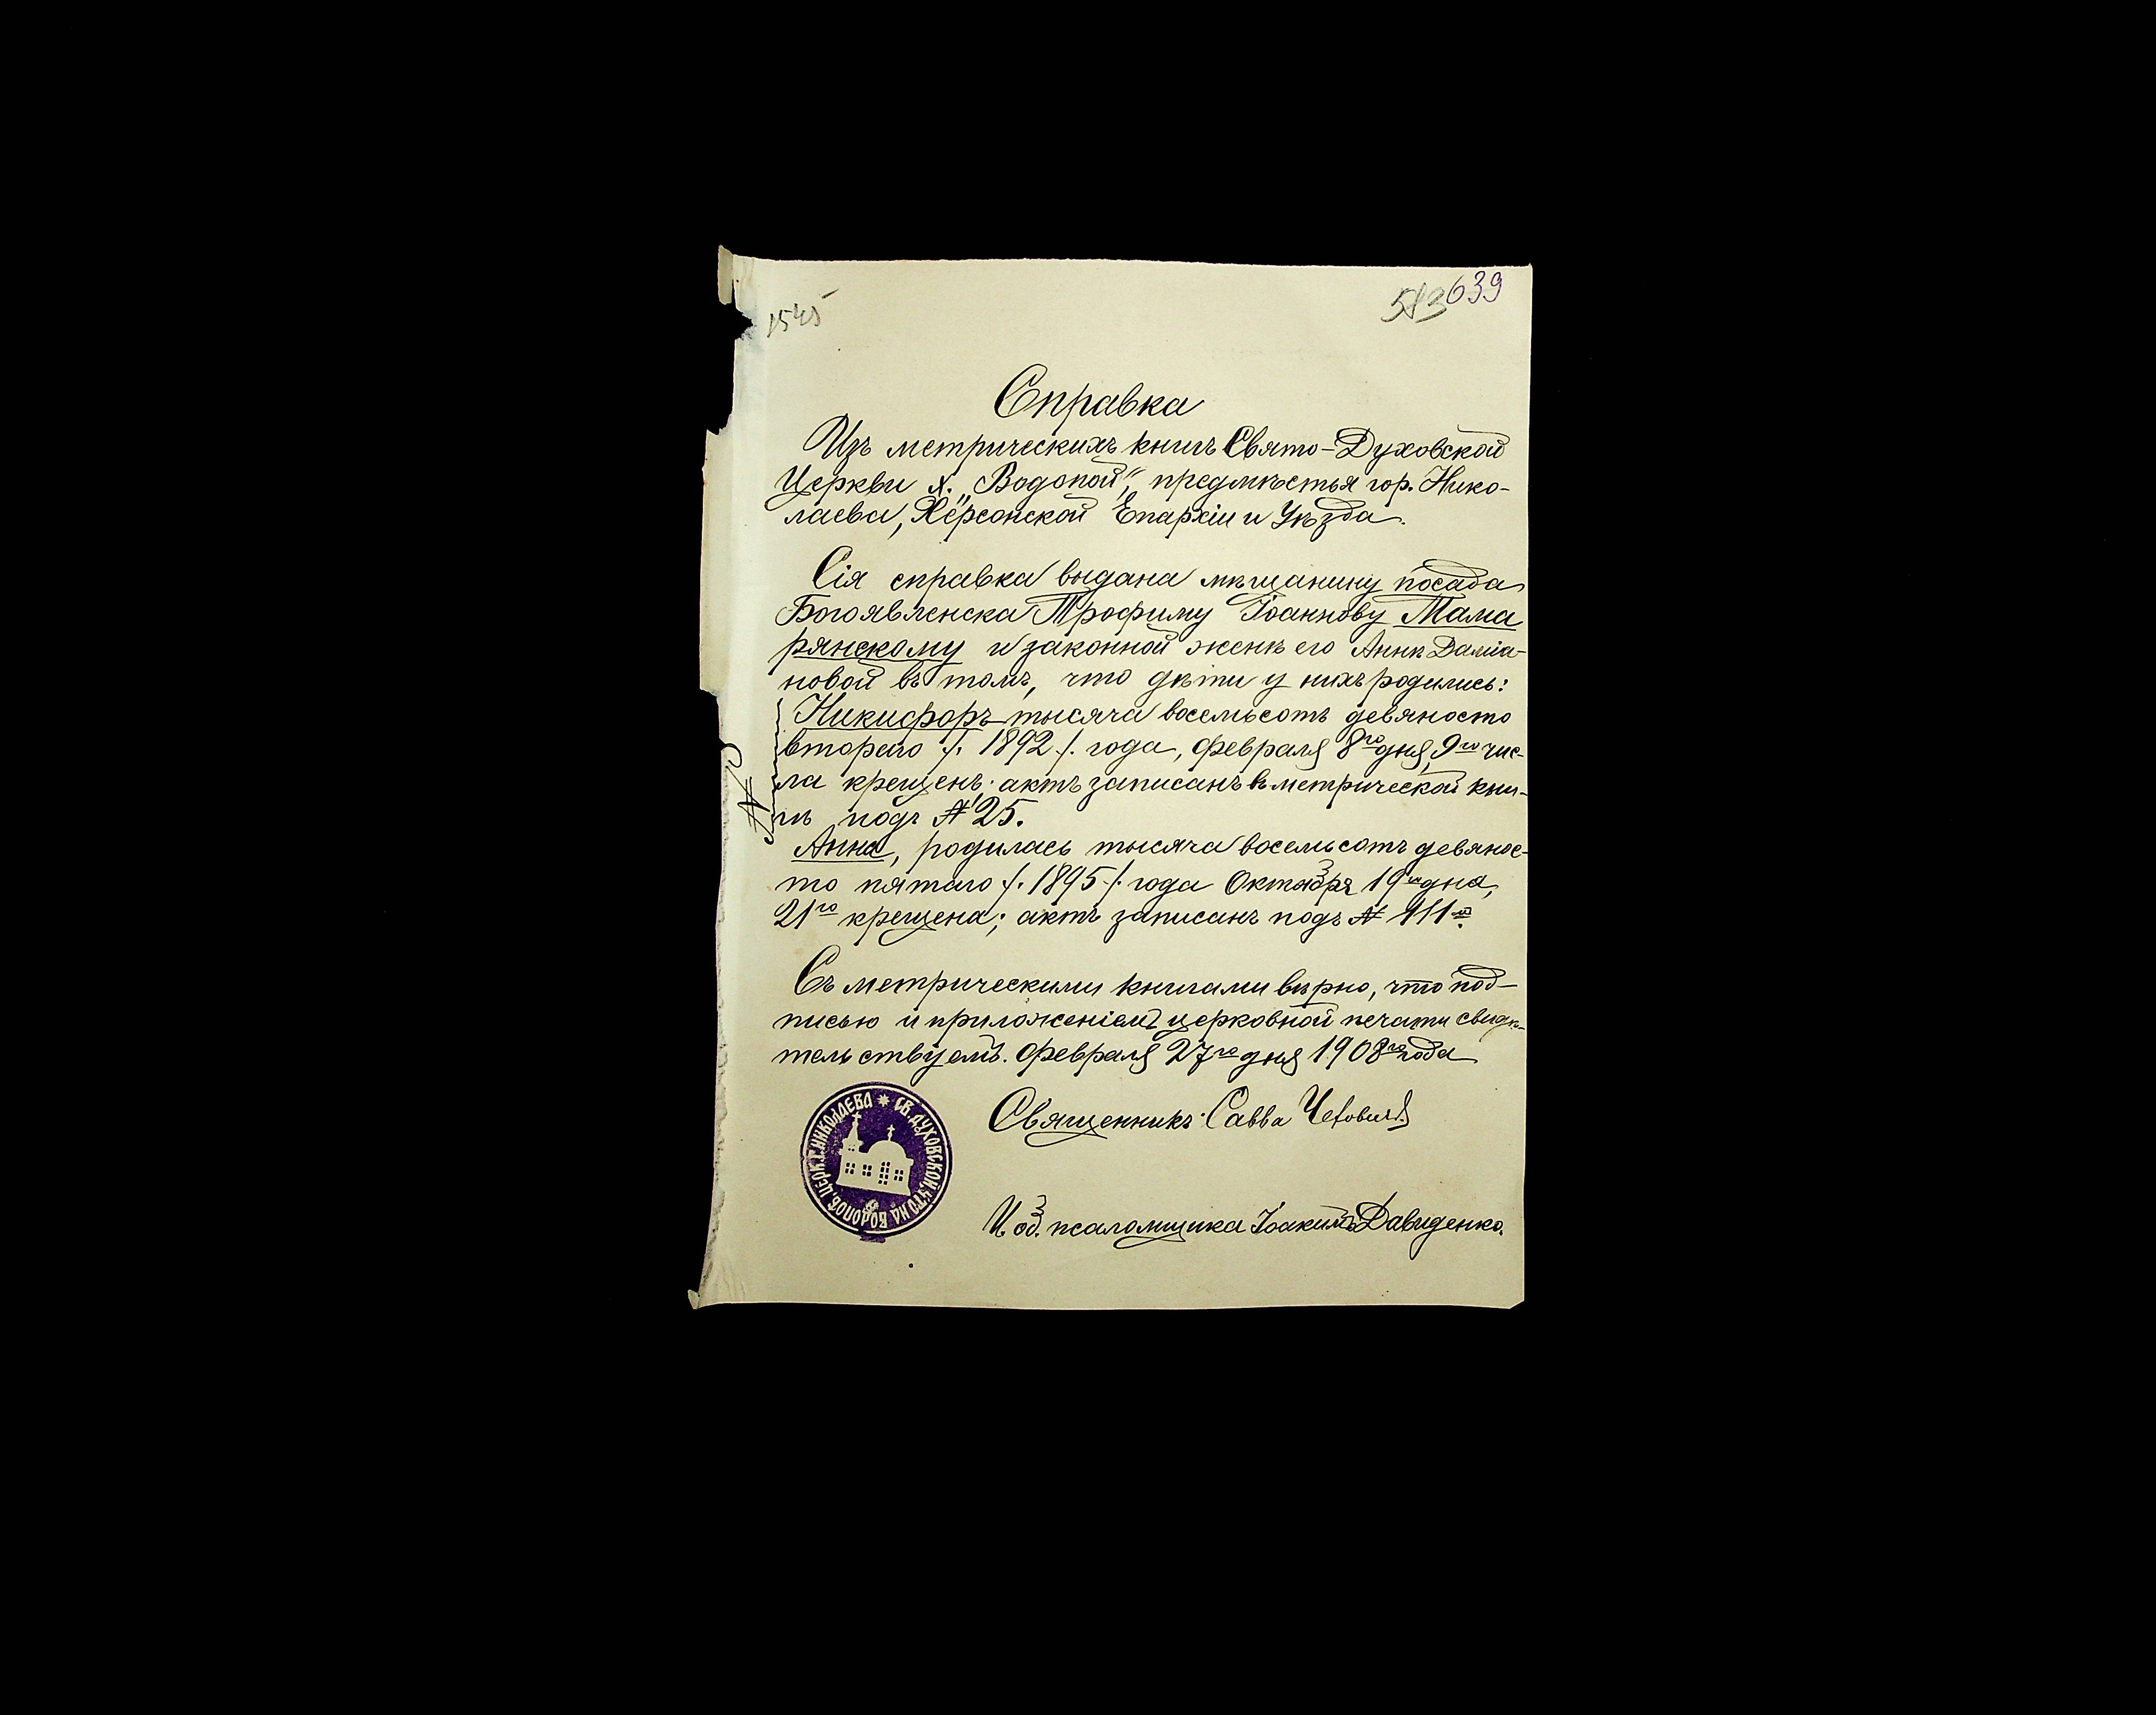 1545
573 639
Справка
Изъ метрическихъ книгъ Свято-Духовской
Церкви х. „Водопой", предмѣстья гор. Нико-
лаева, Херсонской Епархіи и Уѣзда.
Сія справка выдана мѣщанину посада
Богоявленска Трофиму Іоаннову Мама
рянскому и законной женѣ его Аннѣ Даміа-
новой въ томъ, что дѣти у нихъ родились:
Никифоръ тысяча восемьсотъ девяносто
второго /. 1892 /. года, февраля 8го дня, 9го чис-
ла крещенъ: актъ записанъ въ метрической кни-
гѣ подъ № 25.
Анна, родилась тысяча восемьсотъ девянос-
то пятаго /. 1895 /. года Октября 19го дня,
21го крещена; актъ записанъ подъ № 111м.
Съ метрическими книгами вѣрно, что под-
писью и приложеніемъ церковной печати свидѣ-
тельствуемъ. Февраля 27го дня 1908го года
Священникъ Савва
И. об. псаломщика Іоакимъ Давиденко.
СВ. ДУХОВСКОЙ, ЧТО НА ВОДОПОѢ, ЦЕРК. Г. НИКОЛАЕВА